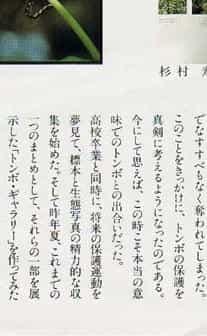 杉村
でなすすべもなく奪われてしまった。
このことをきっかけに、トンボの保護を
真剣に考えるようになったのである。
今にして思えば、この時こそ本当の意
味でのトンボとの出合いだった。
高校卒業と同時に、将来の保護運動を
夢見て、標本と生態写真の精力的な収
集を始めた。そして昨年夏、これまでの
一つのまとめとして、それらの一部を展
示した「トンボ・ギャラリー」を作ってみた